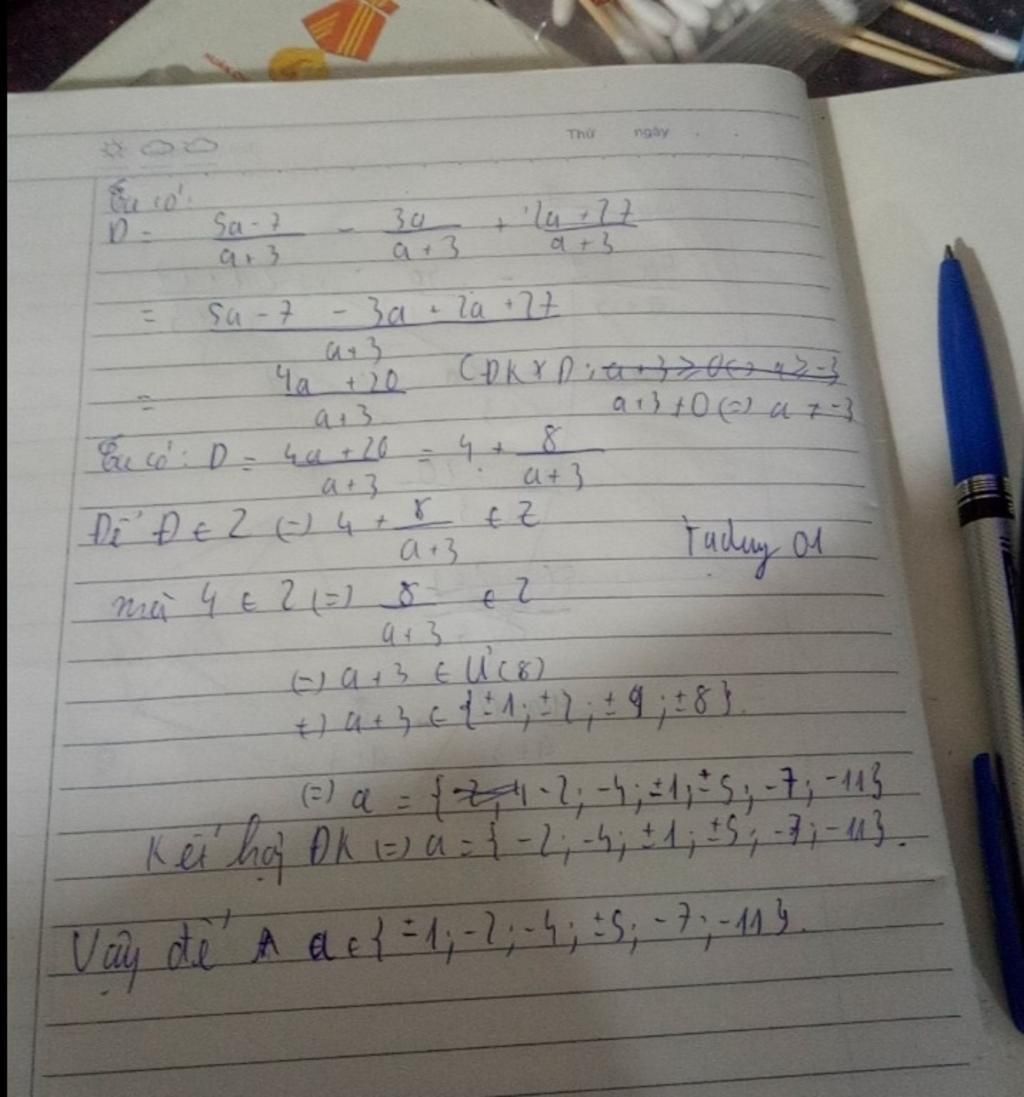 Thứ ngày
Ta có:
D = \frac{5a-7}{a+3} - \frac{3a}{a+3} + \frac{2a+27}{a+3}
= \frac{5a-7-3a+2a+27}{a+3}
= \frac{4a+20}{a+3} (ĐKXĐ: a+3≠0 (=) a≠-3
Ta có: D = \frac{4a+20}{a+3} = 4 + \frac{8}{a+3}
Để Đ ∈ Z (=) 4 + \frac{8}{a+3} ∈ Z
Taduy 01
mà 4 ∈ Z (=) \frac{8}{a+3} ∈ Z
(=) a+3 ∈ Ư(8)
(=) a+3 ∈ {±1; ±2; ±4; ±8}.
(=) a = {-2; -4; ±1; ±5; -7; -11}
Kết hợp ĐK (=) a = {-2; -4; ±1; ±5; -7; -11}.
Vậy để A a ∈ {±1; -2; -4; ±5; -7; -11}.